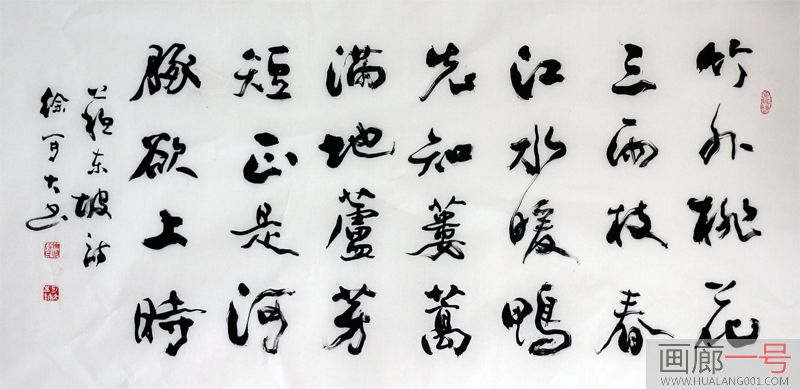 竹外桃花
三兩枝春
江水暖鴨
先知蔞蒿
滿地蘆芽
短正是河
豚欲上時
蘇东坡诗
徐
画廊一号
WWW.HUALANG001.COM